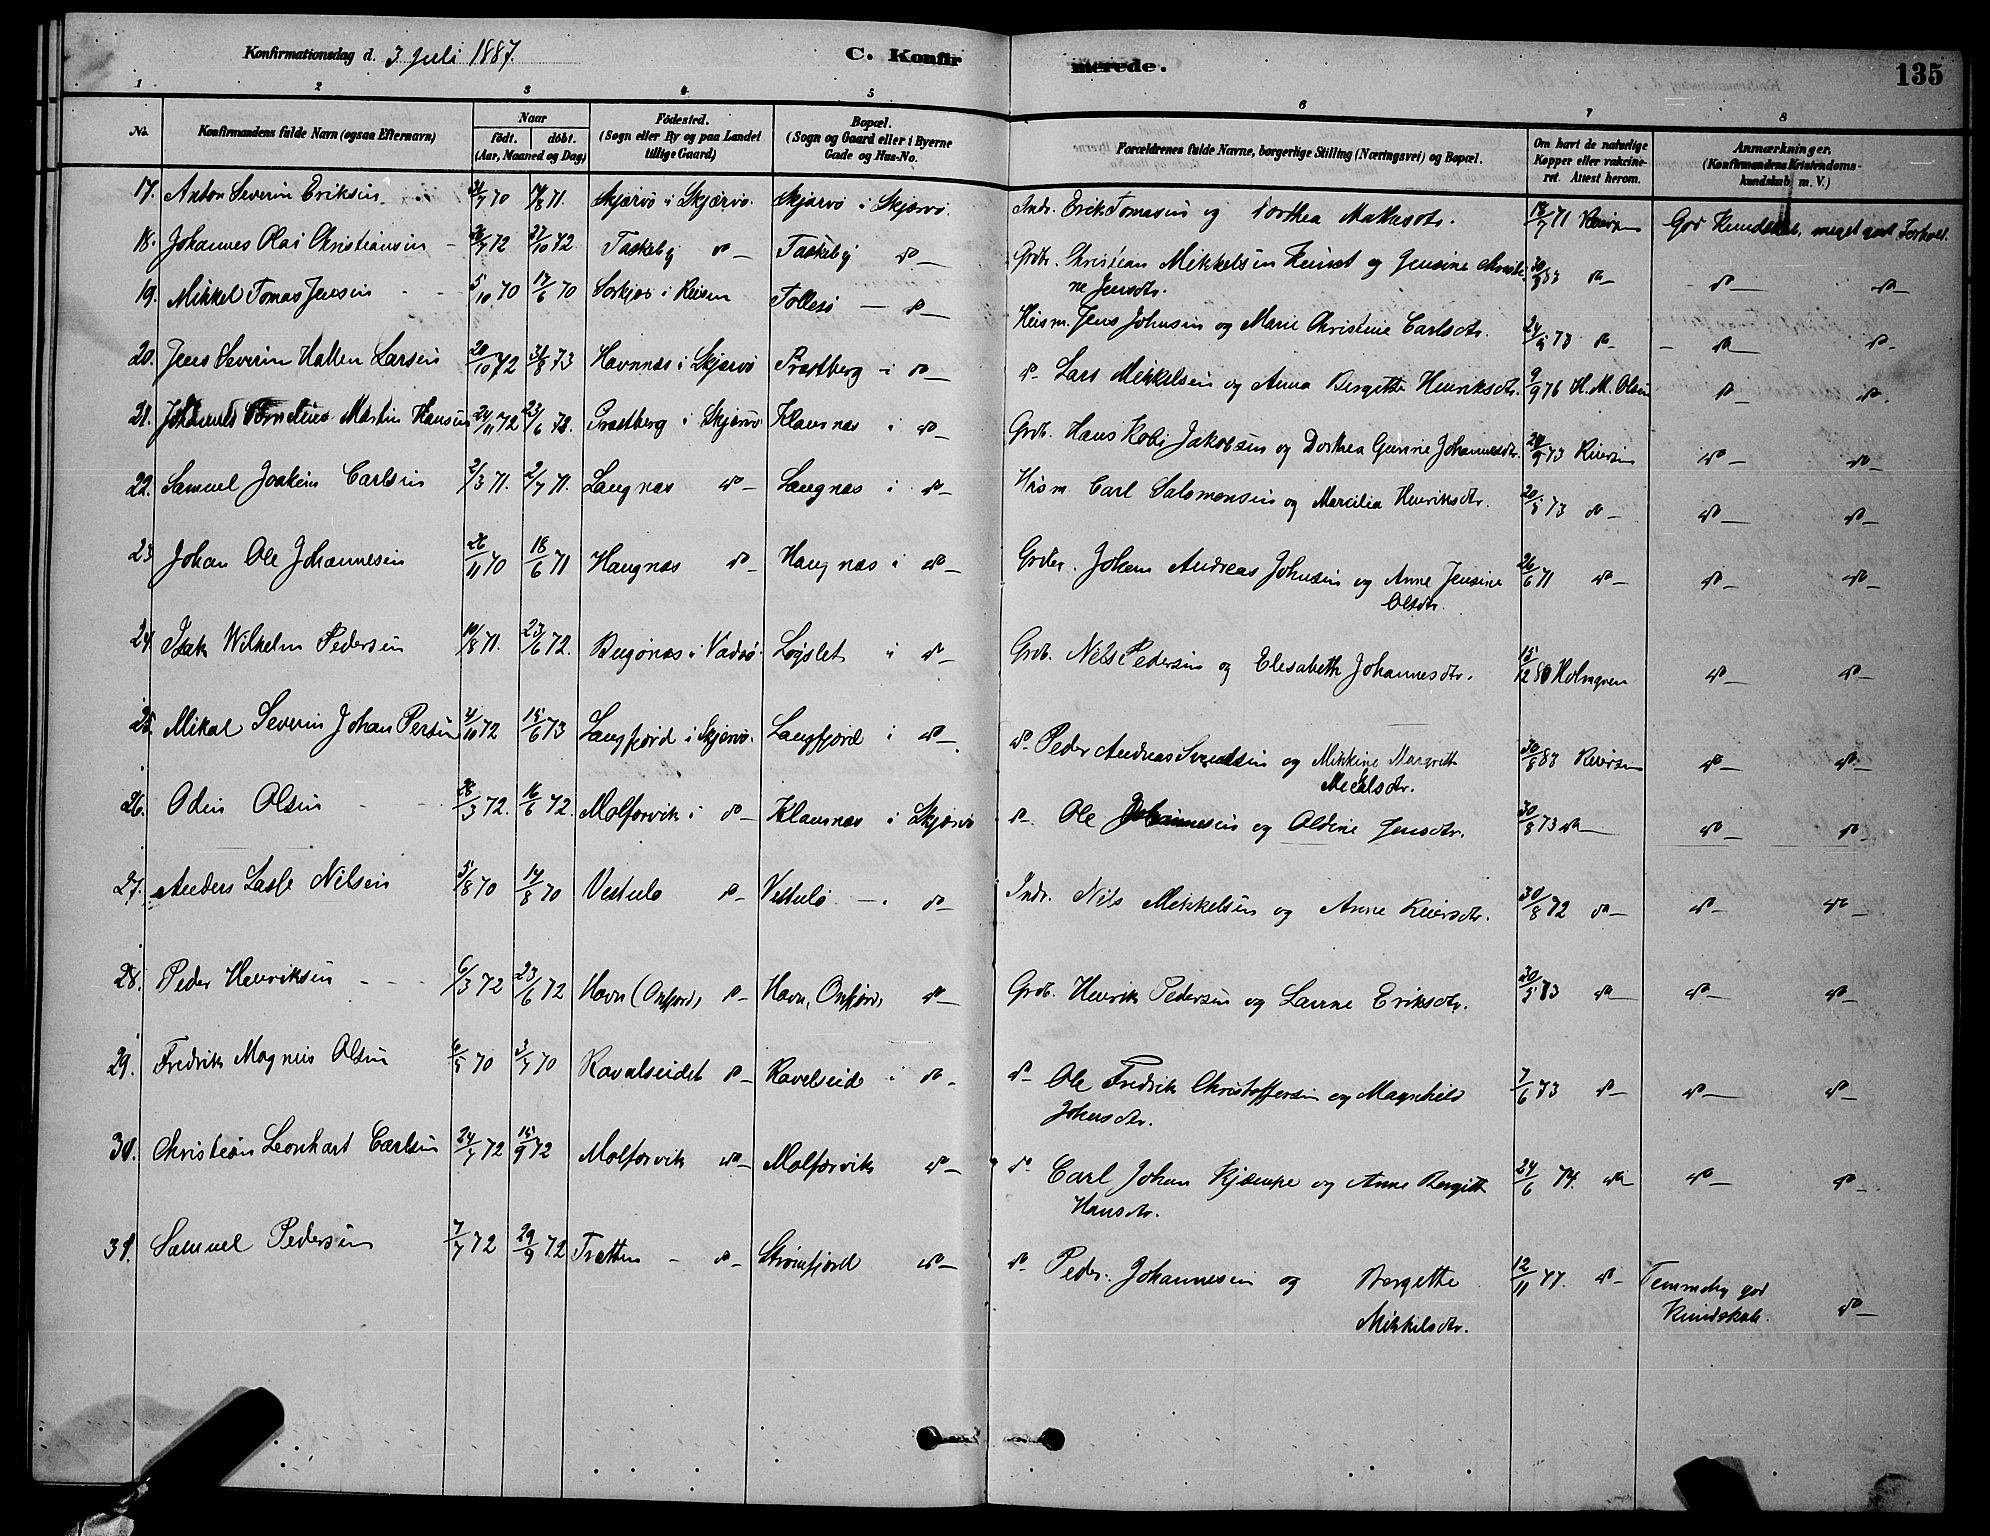 Konfirmationsdag d. 3 Juli 1887.
C. Konfirmerede.
135
1 2 3 4 5 6 7 8
No. Konfirmandens fulde Navn (ogsaa Efternavn) Naar födt. döbt. (Aar, Maaned og Dag) Födested. (Sogn eller By og paa Landet tillige Gaard) Bopæl. (Sogn og Gaard eller i Byerne Gade og Hus-No. Forældrenes fulde Navne, borgerlige Stilling (Næringsvei) og Bopæl. Om havt de naturlige Kopper eller vakcineret. Attest herom. Anmærkninger. (Konfirmandens Kristendomskundskab m. V.)
17. Anton Severin Eriksen 21/7 70 14/8 71. Skjærvö i Skjærvö. Skjærvö i Skjærvö. Indr. Erik Tomasen og Dorthea Mathisdtr. 18/7 71 Reiersen God Kundskab, meget god Forhold.
18. Johannes Olai Christiansen 26/7 72 27/10 72 Taskeby do Taskeby do Grdbr. Christian Mikkelsen Kunst og Jensine Christine Jensdtr. do do do
19. Mikkel Tomas Jensen 5/10 70 17/6 70 Sorkjos i Reisen Follesö do Husm. Jens Johnsen og Marie Christine Carlsdtr. 24/9 73 do do do
20. Jens Severin Hallen Larsen 20/10 72 31/8 73 Havnnæs i Skjærvö Præstberg i do do Lars Mikkelsen og Anna Bergitte Henriksdtr. 9/9 76 H. M. Olsen do do
21. Johannes Cornelius Martin Hansen 24/11 72 23/6 73. Præstberg i Skjærvö Klavnæs i do Grdb. Hans Kobi Jakobsen og Dorthea Gurine Johannesdtr. 24/9 73 Reiersen do do
22. Samuel Joakim Carlsen 2/3 71. 2/7 71. Langnæs do Langnæs i do Husm. Carl Salomonsen og Marcilia Henriksdtr. 20/5 73 do do do
23. Johan Ole Johannesen 26/11 70 18/6 71 Haugnæs do Haugnæs i do Grdbr. Johan Andreas Johnsen og Anne Jensine Olsdtr. 26/6 71 do do do
24. Isak Wilhelm Pedersen 10/8 71. 23/6 72. Bugönæs i Vadsö. Logslet i do Grdb. Nils Pedersen og Elesabeth Johannesdtr. 15/12 80 Holmgren do do
25. Mikal Severin Johan Persen 4/10 72 15/6 73 Langfjord i Skjærvö. Langfjord i do do Peder Andreas Svendsen og Mikkine Margreth Mecelsdtr. 30/8 83 Reiersen do do
26. Odin Olsen 28/3 72. 16/6 72. Molforvik i do Klavnæs i Skjærvö do Ole Johannesen og Oldine Jensdtr. 30/8 73 do do do
27. Anders Lasse Nilsen 5/8 70 14/8 70 Vestulö do Vestulö i do Indr. Nils Mikkelsen og Anne Reiersdtr. 30/8 72 do do do
28. Peder Henriksen 6/3 72 23/6 72 Havn (Oxfjord) do Havn, Oxfjord, do Grdb. Henrik Pedersen og Laurne Eriksdtr. 30/5 73 do do do
29. Fredrik Magnus Olsen 6/5 70 3/7 70 Ravalseidet do Ravelseid i do do Ole Fredrik Christoffersen og Magnhild Johnsdtr. 7/6 73 do do do
30. Christian Leonhart Carlsen 24/7 72 15/9 72 Molforvik do Molforvik do do Carl Johan Kjæmpe og Anne Bergitte Hansdtr. 24/6 74. do do do
31. Samuel Pedersen 7/7 72 29/9 72 Trætten do Strömfjord do do Peder Johannesen og Bergitte Mikkelsdtr. 12/11 77. do Temmelig god Kundskab. do